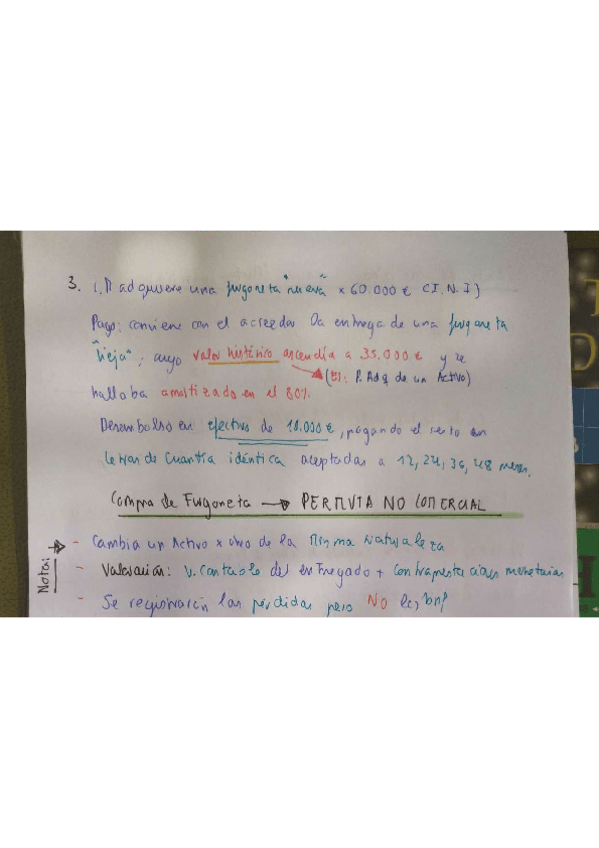 3. 1.M adquiere una furgoneta "nueva" x 60.000 € (I.N.I)
Pago: conviene con el acreedor la entrega de una furgoneta
"vieja", cuyo valor histórico ascendía a 35.000 € y se
(Es: P. Adq de un Activo)
hallaba amortizado en el 80%.
Desembolso en efectivo de 10.000 €, pagando el resto en
letras de cuantía idéntica aceptadas a 12, 24, 36, 48 meses.
Compra de Furgoneta → PERMUTA NO COMERCIAL
Nota:
- Cambia un Activo x otro de la misma naturaleza
- Valoración: v. contable del entregado + contraprestaciones monetarias
- Se registrarán las pérdidas pero NO los bnf